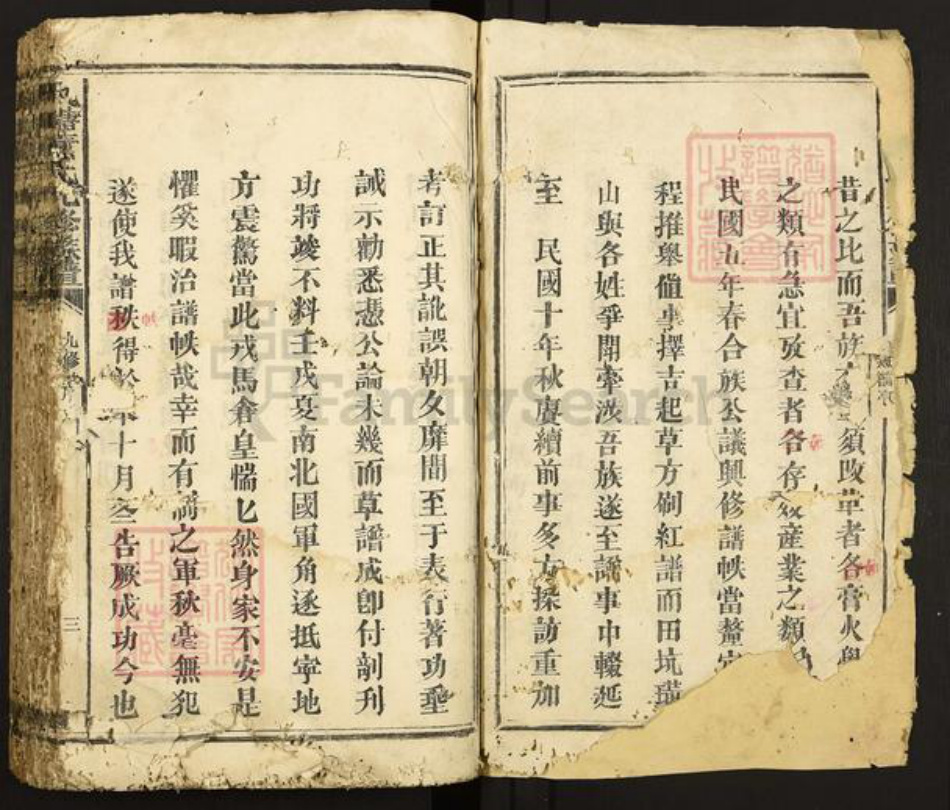 昔之比而吾族 須改革者各膏火
之類有急宜攷查者各存 產業之類
民國五年春合族公議興修譜帙當釐
程推舉値事擇吉起草方刷紅譜而田坑
山與各姓爭開牽涉吾族遂至譜事中輟延
至 民國十年秋賡續前事多方採訪重加
考訂正其訛誤朝夕靡間至于表行著功垂
誡示勸悉憑公論未幾而草譜成卽付剞刊
功將竣不料壬戌夏南北國軍角逐抵寧地
方震驚當此戎馬倉皇惴匕然身家不安是
懼奚暇治譜帙哉幸而有 之軍秋毫無犯
遂使我譜帙得於 年十月 告厥成功今也
九修
三
FamilySearch